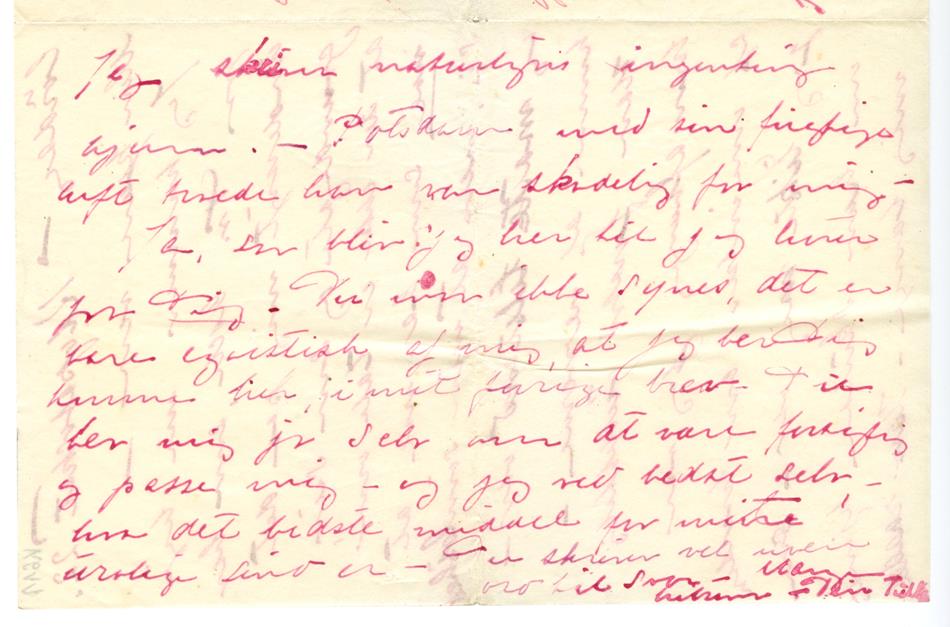 Jeg skriver naturligvis ingenting
hjem. – Potsdam med sin fugtige
luft troede han var skadelig for mig –
Ja, så bliv jeg her til jeg hører
fra Dig. Du må ikke synes, det er
bare egoistisk af mig, at jeg ber Dig
komme her, i mit forrige brev – Du
ber mig jo selv om at være fornuftig
og passe mig – og jeg ved bedst selv,
hva det bedste middel for mitt
urolige sind er – Du skriver vel
ord til svar
Din